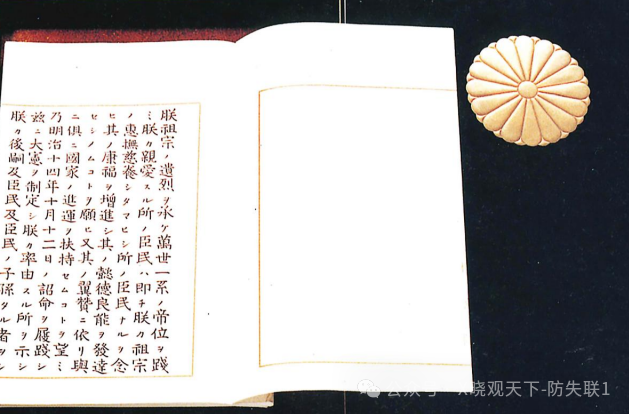 朕祖宗ノ遺烈ヲ承ケ萬世一系ノ帝位ヲ踐
ミ朕カ親愛スル所ノ臣民ハ即チ朕カ祖宗
ノ惠撫慈養シタマヒシ所ノ臣民ナルヲ念
ヒ其ノ康福ヲ增進シ其ノ懿德良能ヲ發達
セシメムコトヲ願ヒ又其ノ翼贊ニ依リ與
ニ俱ニ國家ノ進運ヲ扶持セムコトヲ望ミ
乃明治十四年十月十二日ノ詔命ヲ履踐シ
茲ニ大憲ヲ制定シ朕カ率由スル所ヲ示シ
朕カ後嗣及臣民及臣民ノ子孫タル者ヲシ
公众号 · X晓观天下-防失联1